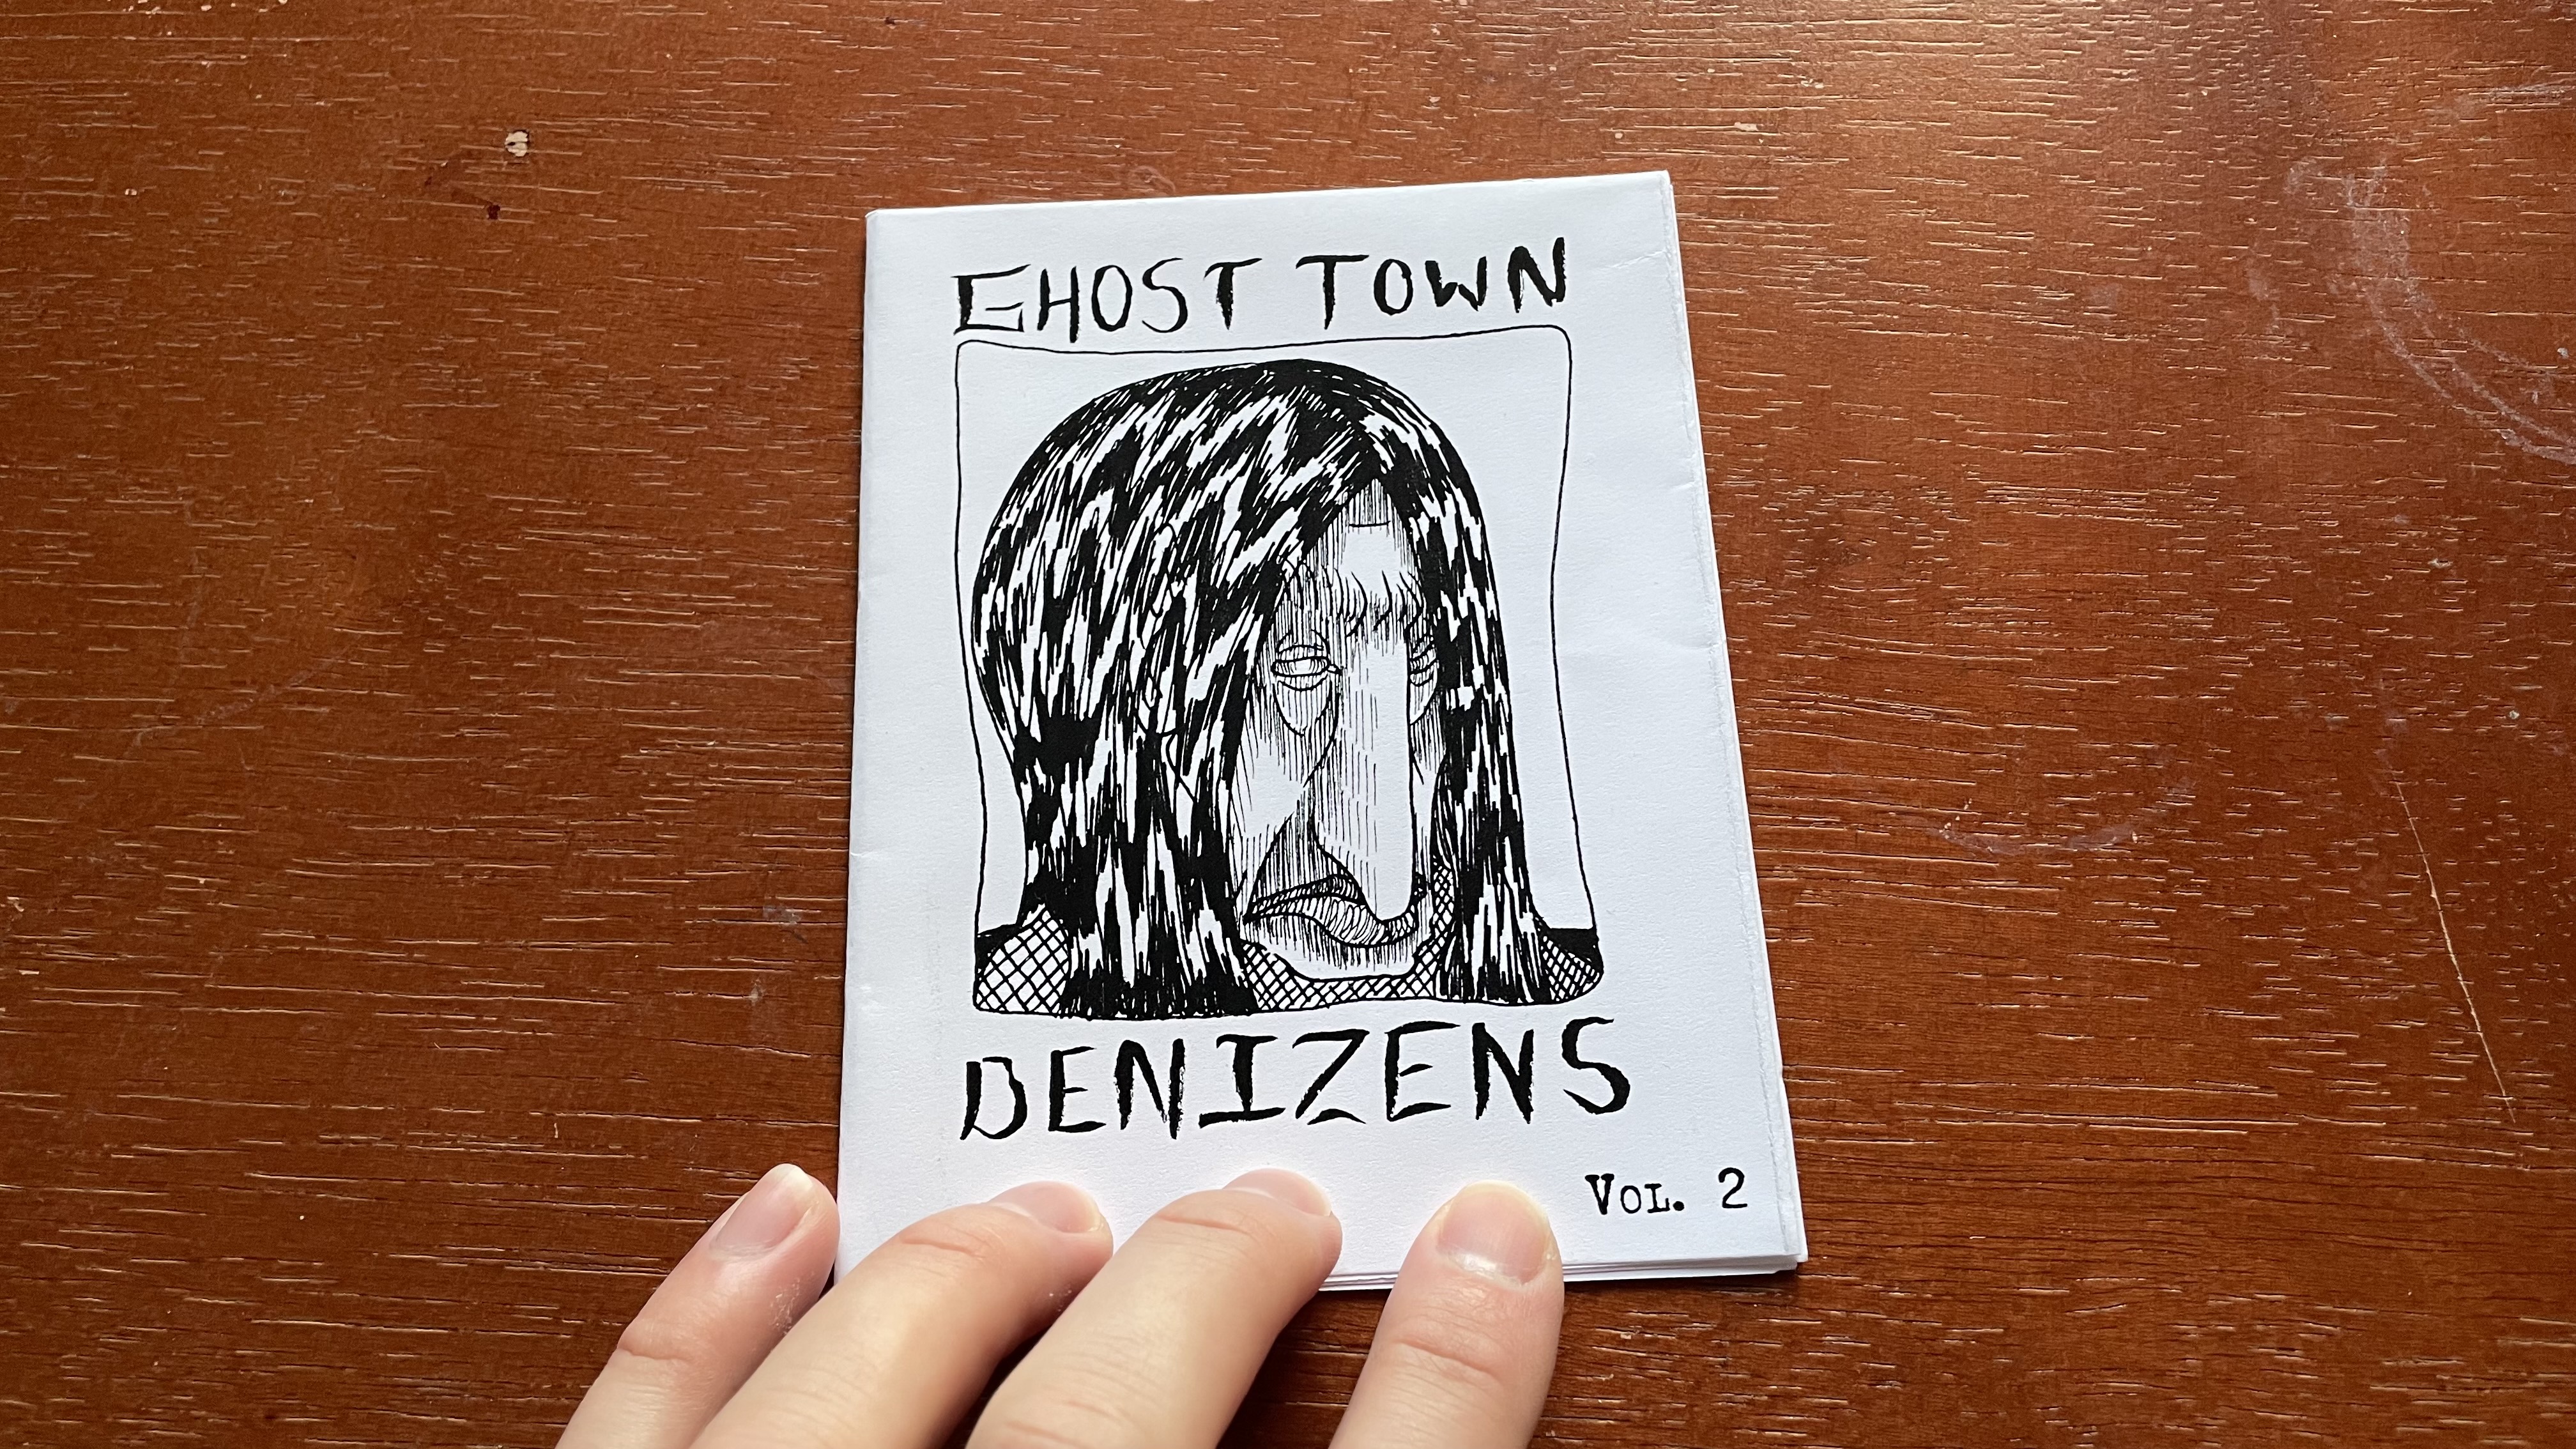 GHOST TOWN
DENIZENS
VOL. 2